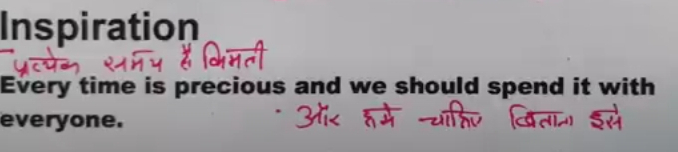 Inspiration
प्रत्येक समय है किमती
Every time is precious and we should spend it with
everyone.
और हमे चाहिए बिताना इसे